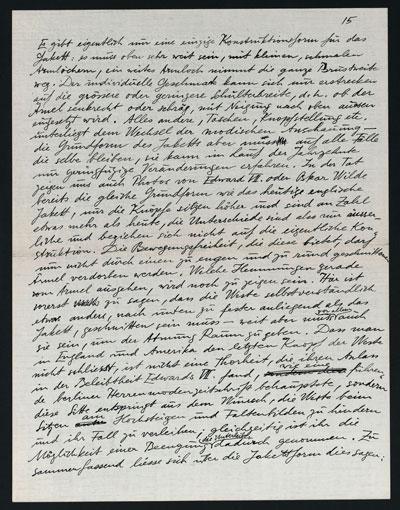 15
Es gibt eigentlich nur eine einzige Konstruktionsform für das
Jakett: es muss oben sehr weit sein, mit kleinen, schmalen
Armlöchern, ein weites Armloch nimmt die ganze Brustweite
weg. Der individuelle Geschmack kann sich nur erstrecken
auf die grössere oder geringere Schulterbreite, d.h. ob der
Ärmel senkrecht oder schräg, mit Neigung nach oben aussen
eingesetzt wird. Alles andere, Taschen, Knopfstellung etc.
unterliegt dem Wechsel der modischen Anschauung —
die Grundform des Jaketts aber muss auf alle Fälle
die selbe bleiben, sie kann im Lauf der Jahrzehnte
nur geringfügige Veränderungen erfahren. In der Tat
zeigen uns auch Photos von Edward VII. oder Oskar Wilde
bereits die gleiche Grundform wie das heutige englische
Jakett, nur die Knöpfe sitzen höher und sind an Zahl
etwas mehr als heute, die Unterschiede sind also nur äusser-
liche und beziehen sich nicht auf die eigentliche Kon-
struktion. Die Bewegungsfreiheit, die diese bietet, darf
nun nicht durch einen zu engen und zu rund geschnittenen
Ärmel verdorben werden. Welche Hemmungen gerade
vom Ärmel ausgehen, wird noch zu zeigen sein. Hier ist
vorerst zu sagen, dass die Weste selbstverständlich
etwas anders, nach unten zu fester anliegend als das
Jakett, geschnitten sein muss — weit aber muss auch vor allem
sie sein, um der Atmung Raum zu geben. Dass man
in England und Amerika den letzten Knopf der Weste
nicht schliesst, ist nicht eine Thorheit, die ihren Anlass
in der Beliebtheit Edwards VII. fand, wie eine führen-
de berliner Herrenmodenzeitschrift behauptete, sondern
diese Sitte entspringt aus dem Wunsch, die Weste beim
Sitzen am Hochsteigen und Faltenbilden zu hindern
und ihr Fall zu verleihen, gleichzeitig ist ihr die
Möglichkeit einer Beengung des Unterleibs dadurch genommen. Zu
sammenfassend liesse sich über die Jakettform dies sagen: